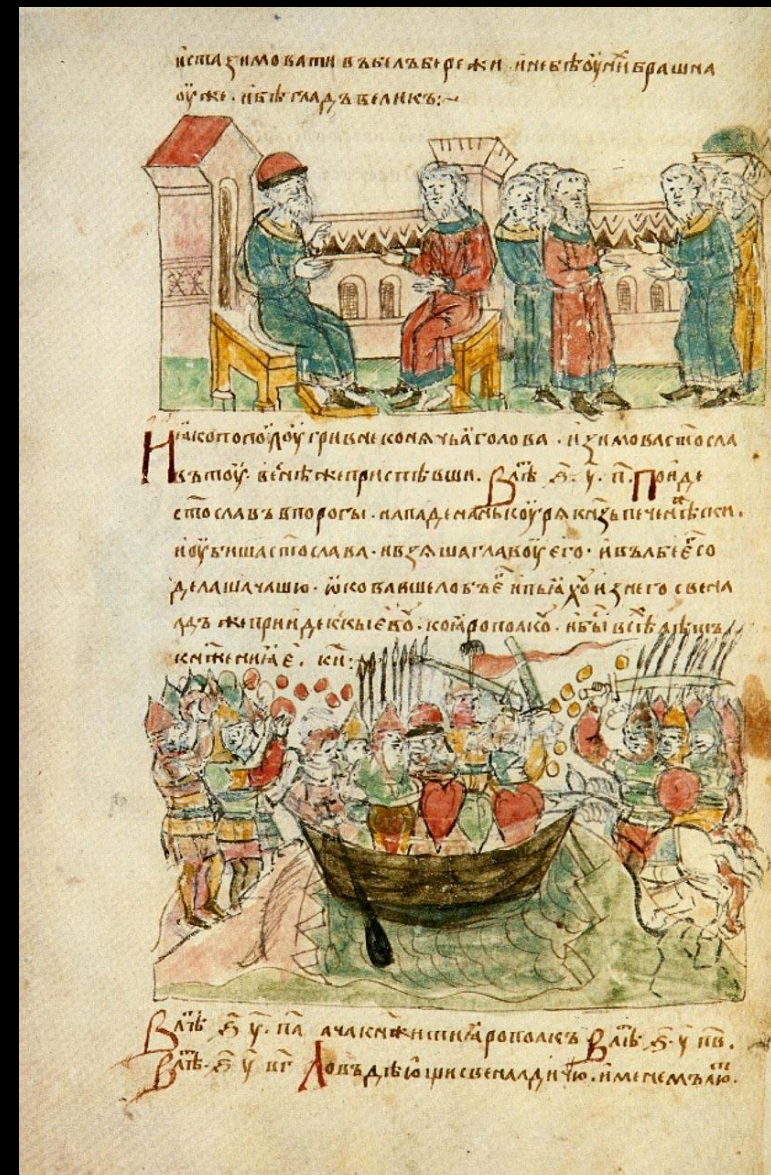 иста зимовати въ белъбережи · и не бѣ оу ни брашна
оуже · и бѣ гладъ великъ :~
И яко по полоу гривне конячьа голова · и зимова стосла
въ тоу · веснѣ же приспѣвши. В лѣⷮ ҂ѕ҃ · у҃ · п҃ · Поиде
стославъ в порогы · нападе на нь коуря кнзь печенѣски.
и оубиша стослава · и взяша главоу его · и в лбе е͠ со
делаша чашю · ѡковавше лобъ е͠ и пьахоⷹ из него свена
лдъ же прииде къ кыевоⷹ · ко ярополкоⷹ · и быⷭ всѣⷯ лѣⷮ
кнжениа е͠. ки҃ :
В лѣⷮ ҂ѕ҃ у҃ · па҃ нача кнжити ярополкъ В лѣⷮ · ҂ѕ҃ · у҃ пв҃.
В лѣⷮ · ҂ѕ҃ у҃ пг҃ Ловъ дѣющи свеналдичю · именемъ лю.